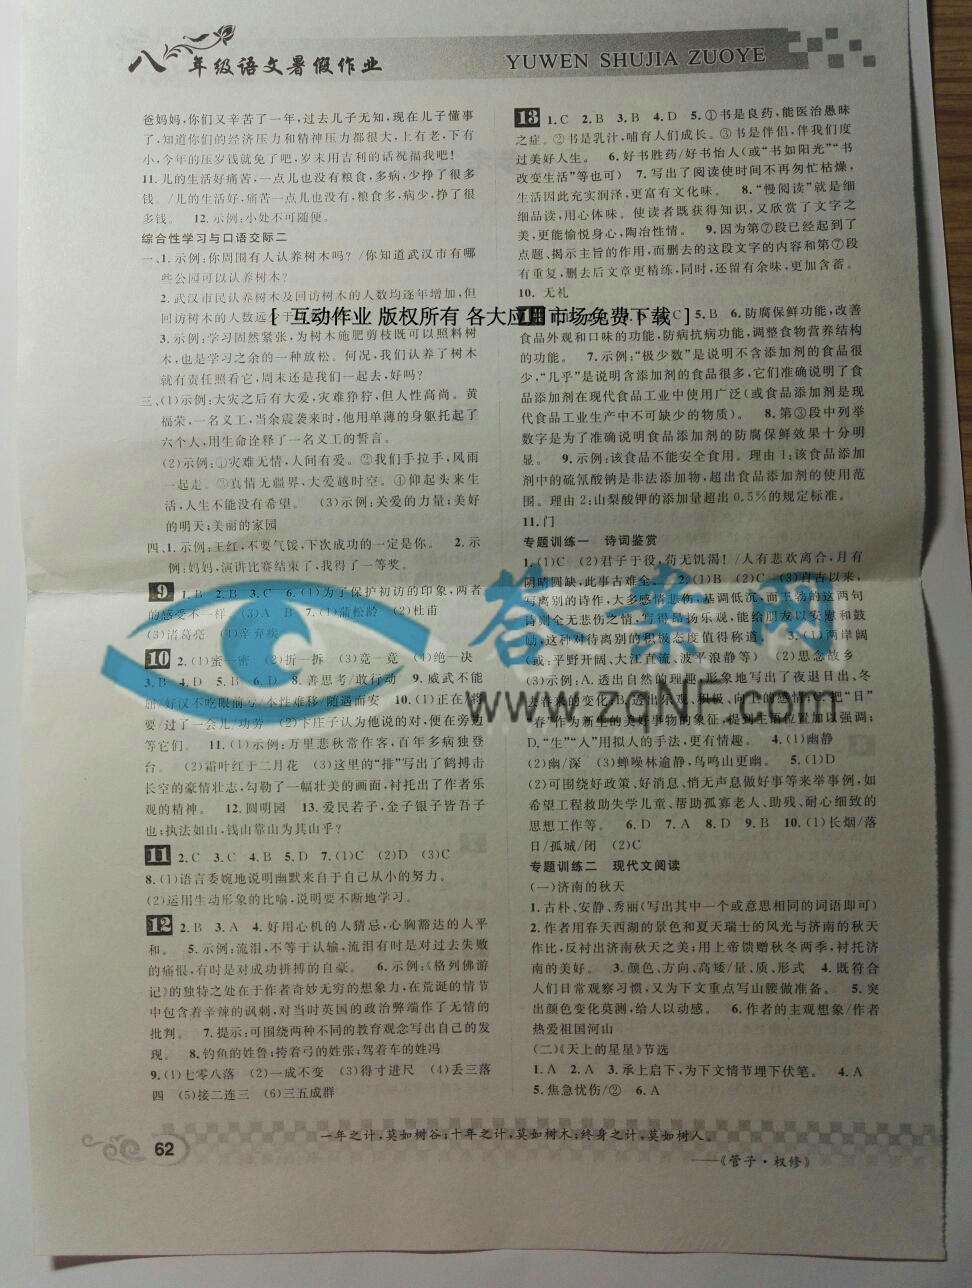 八年级语文暑假作业
YUWEN SHUJIA ZUOYE
爸妈妈,你们又辛苦了一年,过去儿子无知,现在儿子懂事
了,知道你们的经济压力和精神压力都很大,上有老,下有
小,今年的压岁钱就免了吧,岁末用吉利的话祝福我吧!
11.儿的生活好痛苦,一点儿也没有粮食,多病,少挣了很多
钱。/儿的生活好,痛苦一点儿也没有,粮食多,病少,挣了很
多钱。 12.示例:小处不可随便。
综合性学习与口语交际二
一、1.示例:你周围有人认养树木吗? /你知道武汉市有哪
些公园可以认养树木?
2.武汉市民认养树木及回访树木的人数均逐年增加,但
回访树木的人数远少于
3.示例:学习固然紧张,为树木施肥剪枝既可以照料树
木,也是学习之余的一种放松。何况,我们认养了树木
就有责任照看它,周末还是我们一起去,好吗?
三、(1)示例:大灾之后有大爱,灾难狰狞,但人性高尚。黄
福荣,一名义工,当余震袭来时,他用单薄的身躯托起了
六个人,用生命诠释了一名义工的誓言。
(2)示例:①灾难无情,人间有爱。②我们手拉手,风雨
一起走。③真情无疆界,大爱越时空。④仰起头来生
活,人生不能没有希望。 (3)示例:关爱的力量;美好
的明天;美丽的家园
四、1.示例:王红,不要气馁,下次成功的一定是你。 2.示
例:妈妈,演讲比赛结束了,我得了一等奖。
9 1.B 2.B 3.C 6.(1)为了保护初访的印象,两者
的感受不一样 (3)A B 7.(1)蒲松龄 (2)杜甫
(3)诸葛亮 (4)辛弃疾
10 2.(1)蜜—密 (2)折—拆 (3)竞—竟 (4)绝—决
3.B 4.D 5.B 6.D 8.善思考/敢行动 9.威武不能
屈/好汉不吃眼前亏 本性难移/随遇而安 10.(1)正在将
要/过了一会儿/功劳 (2)卞庄子认为他说的对,便在旁边
等它们。 11.(1)示例:万里悲秋常作客,百年多病独登
台。 (2)霜叶红于二月花 (3)这里的“排”写出了鹤搏击
长空的豪情壮志,勾勒了一幅壮美的画面,衬托出了作者乐
观的精神。 12.圆明园 13.爱民若子,金子银子皆吾子
也;执法如山,钱山靠山为其山乎?
11 2.C 3.C 4.B 5.D 7.(1)C (2)D (3)C
8.(1)语言委婉地说明幽默来自于自己从小的努力。
(2)运用生动形象的比喻,说明要不断地学习。
12 2.B 3.A 4.好用心机的人猜忌,心胸豁达的人平
和。 5.示例:流泪,不等于认输,流泪有时是对过去失败
的痛恨,有时是对成功拼搏的自豪。 6.示例:《格列佛游
记》的独特之处在于作者奇妙无穷的想象力,在荒诞的情节
中包含着辛辣的讽刺,对当时英国的政治弊端作了无情的
批判。 7.提示:可围绕两种不同的教育观念写出自己的发
现。 8.钓鱼的姓鲁;挎着弓的姓张;驾着车的姓冯
9.(1)七零八落 (2)一成不变 (3)得寸进尺 (4)丢三落
四 (5)接二连三 (6)三五成群
13 1.C 2.B 3.B 4.D 5.①书是良药,能医治愚昧
之症。②书是乳汁,哺育人们成长。③书是伴侣,伴我们度
过美好人生。 6.好书胜药/好书怡人(或“书如阳光”“书
改变生活”等也可) 7.写出了阅读使时间不再匆忙枯燥,
生活因此充实润泽,更富有文化味。 8.“慢阅读”就是细
细品读,用心体味。使读者既获得知识,又欣赏了文字之
美,更能愉悦身心,陶冶性情。 9.因为第⑦段已经起到了
点题、揭示主旨的作用,而删去的这段文字的内容和第⑦段
有重复,删去后文章更精练,同时,还留有余味,更加含蓄。
10.无礼
[ 互动作业 版权所有 各大应 市场免费下载 ]
C 5.B 6.防腐保鲜功能,改善
食品外观和口味的功能,防病抗病功能,调整食物营养结构
的功能。 7.示例:“极少数”是说明不含添加剂的食品很
少,“几乎”是说明含添加剂的食品很多,它们准确说明了食
品添加剂在现代食品工业中使用广泛(或食品添加剂是现
代食品工业生产中不可缺少的物质)。 8.第③段中列举
数字是为了准确说明食品添加剂的防腐保鲜效果十分明
显。 9.示例:该食品不能安全食用。理由1:该食品添加
剂中的硫氰酸钠是非法添加物,超出食品添加剂的使用范
围。理由2:山梨酸钾的添加量超出0.5%的规定标准。
11.门
专题训练一 诗词鉴赏
1.(1)C (2)君子于役,苟无饥渴! /人有悲欢离合,月有
阴晴圆缺,此事古难全。 2.(1)B (2)C (3)自古以来,
写离别的诗作,大多感情悲伤,基调低沉,而王勃的这两句
诗则全无悲伤之情,写得昂扬乐观,能给朋友以安慰和鼓
励,这种对待离别的积极态度值得称道。 3.(1)两岸阔
(或:平野开阔、大江直流、波平浪静等) (2)思念故乡
(3)示例:A.透出自然的理趣,形象地写出了夜退日出、冬
去春来的变化;B.透出乐观、积极、向上的感情;C.把“日”
“春”作为新生的美好事物的象征,提到主语位置加以强调;
D.“生”“入”用拟人的手法,更有情趣。 4.(1)幽静
(2)幽/深 (3)蝉噪林逾静,鸟鸣山更幽。 5.(1)D
(2)可围绕好政策、好消息、悄无声息做好事等来举事例,如
希望工程救助失学儿童、帮助孤寡老人、助残、耐心细致的
思想工作等。 6.D 7.A 8.D 9.B 10.(1)长烟/落
日/孤城/闭 (2)C
专题训练二 现代文阅读
(一)济南的秋天
1.古朴、安静、秀丽(写出其中一个或意思相同的词语即可)
2.作者用春天西湖的景色和夏天瑞士的风光与济南的秋天
作比,反衬出济南秋天之美;用上帝馈赠秋冬两季,衬托济
南的美好。 3.颜色、方向、高矮/量、质、形式 4.既符合
人们日常观察习惯,又为下文重点写山腰做准备。 5.突
出颜色变化莫测,给人以动感。 6.作者的主观想象/作者
热爱祖国河山
(二)《天上的星星》节选
1.A 2.A 3.承上启下,为下文情节埋下伏笔。 4.A
5.焦急忧伤/② 6.A
答案网
www.zqNF.com
62
一年之计,莫如树谷;十年之计,莫如树木;终身之计,莫如树人。
——《管子·权修》